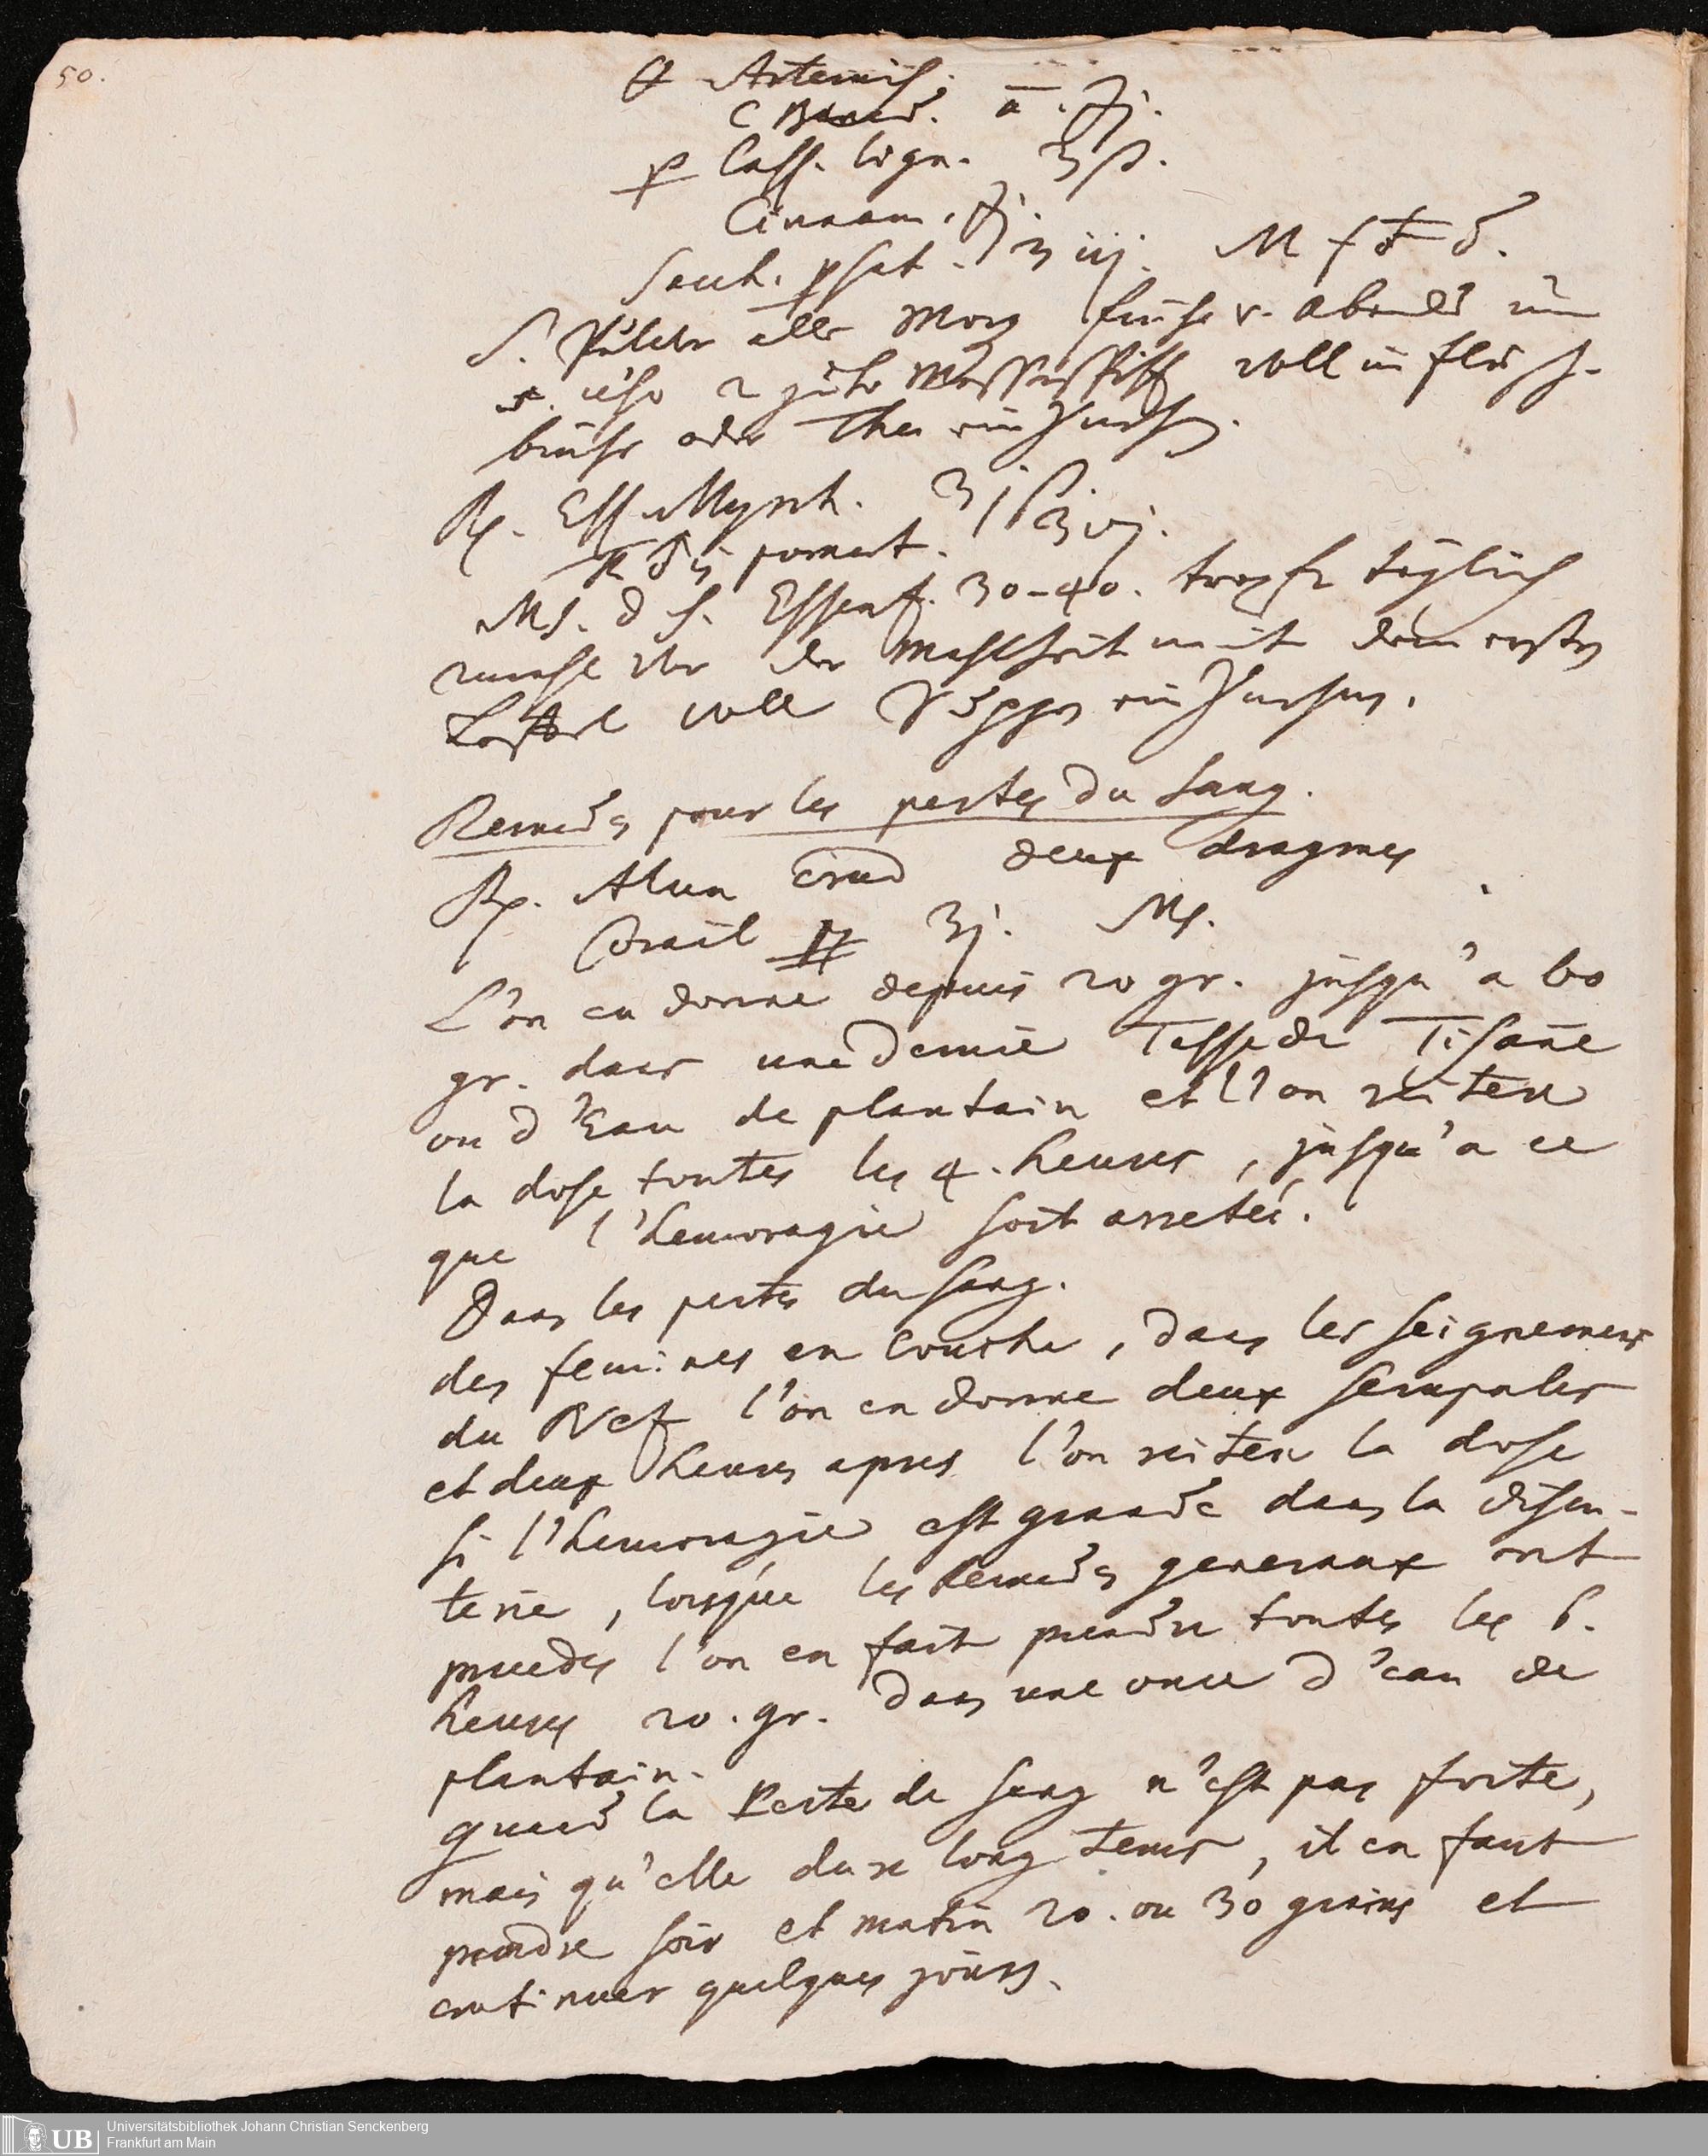 50.
Artemis.
C Bened. ā. ʒj.
Cass. lign. ʒß.
Cinnam. ʒj.
Sach. ʒiij. M f
S. Pulver alle Morg frühe v. Abends um
5. uhr 2 gute voll in fleisch-
brühe oder Thee
Rx. Ess Myrrh. ʒjß
pomat. ʒvj.
MS. d S. Essenz. 30-40. tropfen täglich
der Mahlzeit mit dem ersten
voll Suppen
Remedes pour les pertes du sang.
Rx. Alun crud deux dragmes
Corail ʒj. MS.
L'on en donne depuis 20 gr. jusqu'a 60
gr. dans une demie Tasse de Tisane
ou d'Eau de plantain et l'on reitere
la dose toutes les 4. heures, jusqu'a ce
que l'hemoragie soit arreteé.
Dans les pertes du sang.
des femmes en couche, dans les seignemens
du Nez l'on en donne deux scrupules
et deux heures apres l'on reitere la dose
si l'hemoragie est grande dans la disen-
terie, lorsque les Remedes generaux ont
precedés l'on en fait prendre toutes les 6.
heures 20. gr. dans une once d'eau de
plantain.
quand la Perte de sang n'est pas forte,
mais qu'elle dure long tems, il en faut
prendre soir et matin 20. ou 30 grains et
continuer quelques jours.
UB
Universitätsbibliothek Johann Christian Senckenberg
Frankfurt am Main